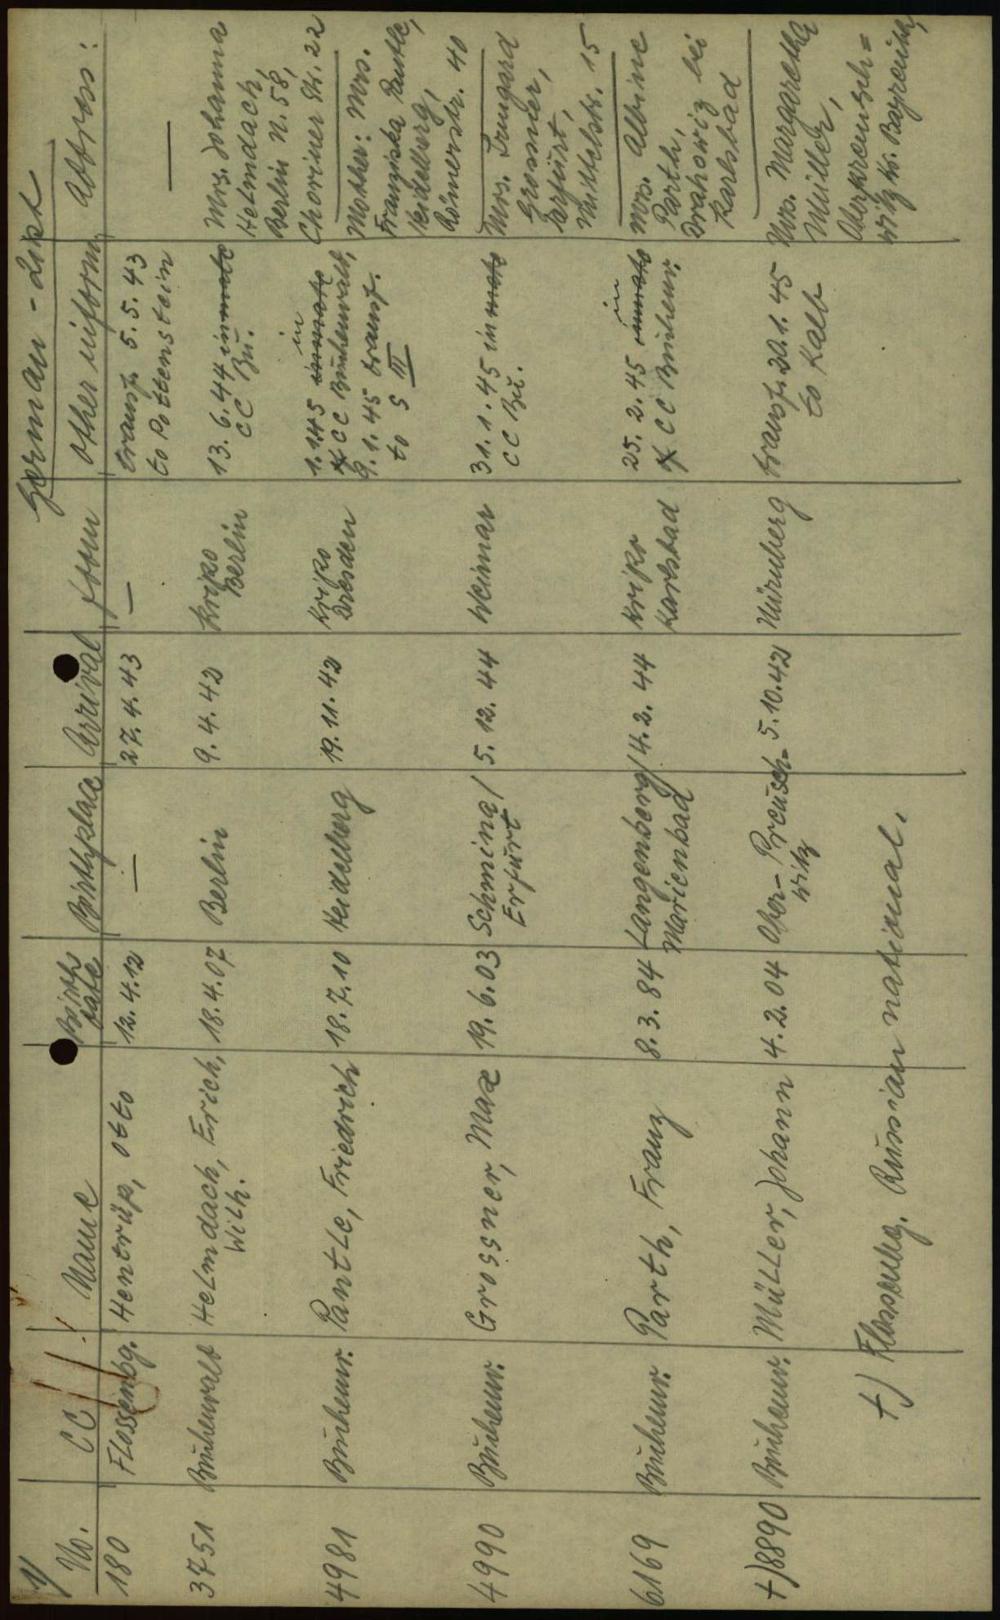 1)
German - List
No. CC Name Birth date Birthplace Arrival from other inform. Address:
180 Flossenbg. Hentrüp, Otto 12.4.12 — 27.4.43 — transf. 5.5.43 —
to Pottenstein
3751 Buchenwald Helmdach, Erich, 18.4.07 Berlin 9.4.42 Kripo 13.6.44 inmate Mrs. Johanna
Wilh. Berlin CC Bu. Helmdach,
Berlin N.58,
Choriner Str. 22
4981 Buchenw. Pantle, Friedrich 18.7.10 Heidelberg 19.11.42 Kripo 1.1.45 inmate in Mother: Mrs.
Dresden CC Buchenwald, Franziska Pantle,
9.1.45 transf. Heidelberg,
to S III Römerstr. 40
4990 Buchenw. Grossner, Max 19.6.03 Schmina/ 5.12.44 Weimar 31.1.45 inmate Mrs. Irmgard
Erfurt CC Bu. Grossner,
Erfurt,
Mittelstr. 15
6169 Buchenw. Parth, Franz 8.3.84 Langenberg/ 4.2.44 Kripo 25.2.45 inmate in Mrs. Albine
Marienbad Karlsbad CC Buchenw. Parth,
Drahowiz bei
Karlsbad
+)8890 Buchenw. Müller, Johann 4.2.04 Ober-Preusch- 5.10.42 Nürnberg transf. 20.1.45 Mrs. Margaretha
witz to Kalb Müller,
Oberpreusch=
witz Kr. Bayreuth,
+) Flossenbg. Russian national.